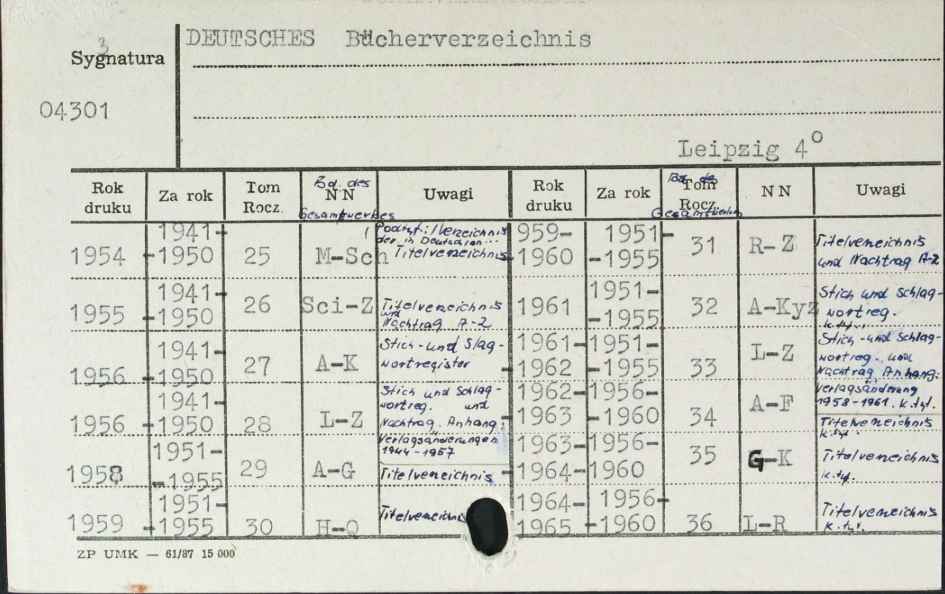 DEUTSCHES Bücherverzeichnis
3
Sygnatura
04301
Leipzig 4º
Rok druku Za rok Tom Rocz. Bd. des NN Gesamtwerkes Uwagi Rok druku Za rok Bd. des Tom Rocz. NN Uwagi
1954 1941-1950 25 M-Sch Titelverzeichnis
1955 1941-1950 26 Sci-Z Titelverzeichnis und Nachtrag A-Z
1956 1941-1950 27 A-K Stich-und Slagwortregister
1956 1941-1950 28 L-Z Stich und Schlagwortreg. und Nachtrag. Anhang: Verlagsänderungen 1944-1957
1958 1951-1955 29 A-G Titelverzeichnis
1959 1951-1955 30 H-Q
1959-1960 1951-1955 31 R-Z Titelverzeichnis und Nachtrag A-Z
1961 1951-1955 32 A-Kyz Stich und Schlagwortreg. k.tyt.
1961-1962 1951-1955 33 L-Z Stich-und Schlagwortreg. und Nachtrag Anhang: Verlagsänderung 1958-1961. k.tyt.
1962-1963 1956-1960 34 A-F Titelverzeichnis k.tyt.
1963-1964 1956-1960 35 G-K Titelverzeichnis k.tyt.
1964-1965 1956-1960 36 L-R Titelverzeichnis k.tyt.
ZP UMK — 61/87 15 000